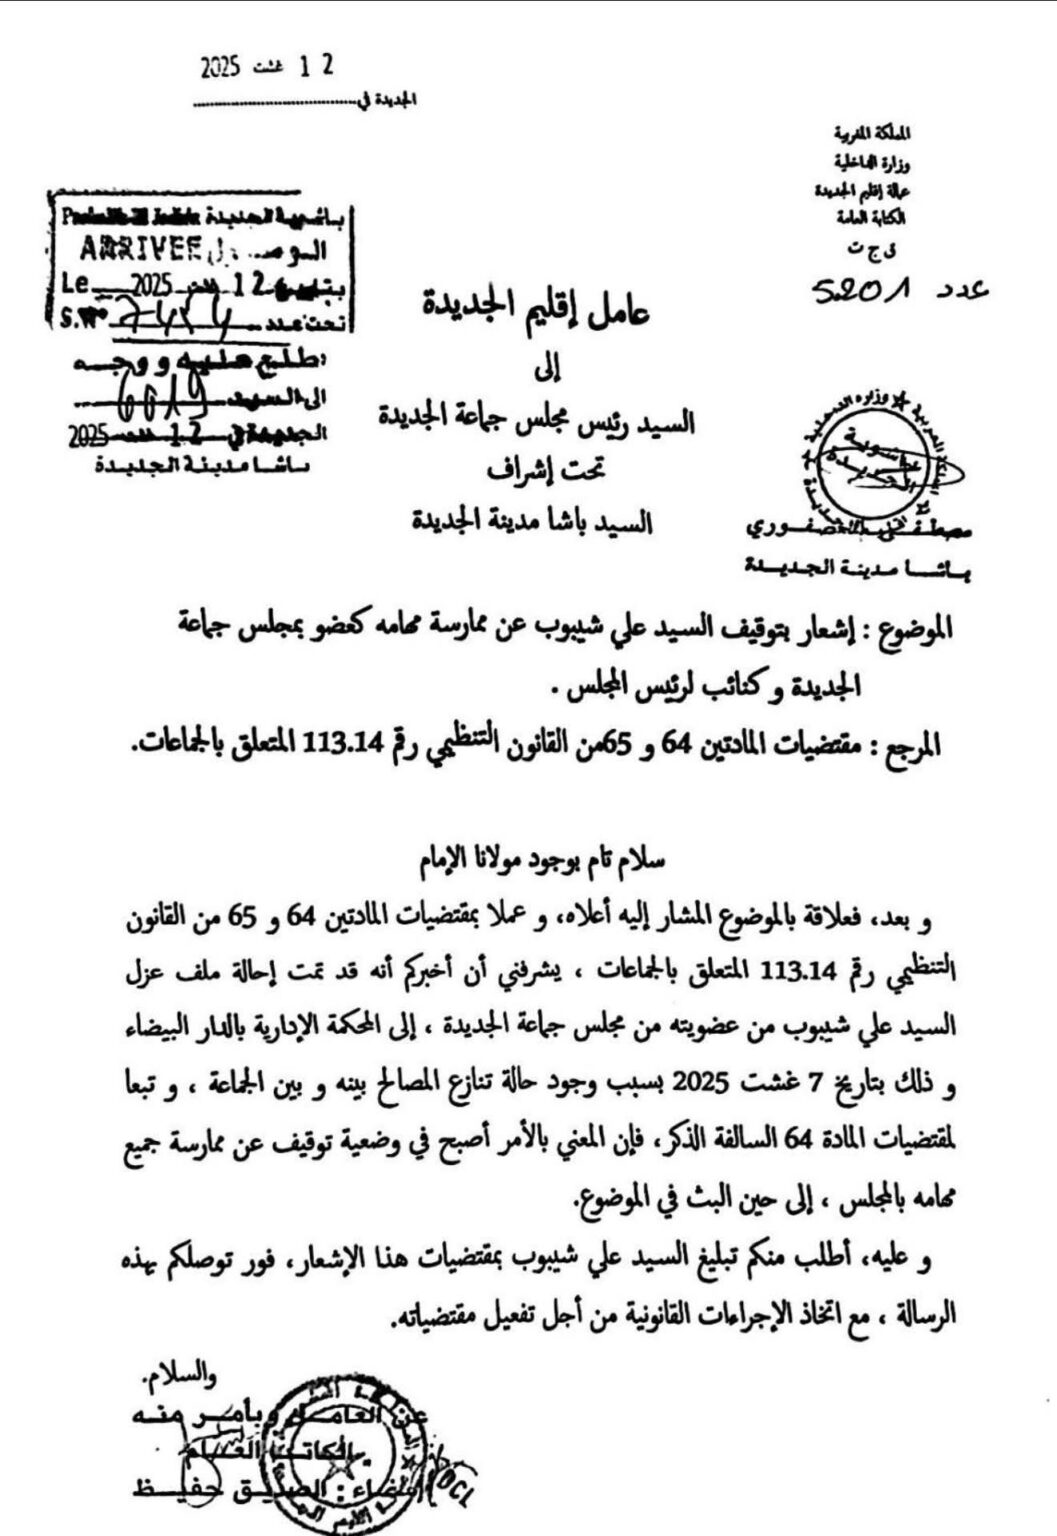 12 غشت 2025
الجديدة في
المملكة المغربية
وزارة الداخلية
عمالة إقليم الجديدة
الكتابة العامة
ق ج ت
عدد 5201
باشوية الجديدة
ARRIVEE الوصول
Le 12 غشت 2025 بتاريخ
S.N° تحت عدد
اطلع عليه ووجه
الى السيد
الجديدة في 12 غشت 2025
باشا مدينة الجديدة
عامل إقليم الجديدة
إلى
السيد رئيس مجلس جماعة الجديدة
تحت إشراف
السيد باشا مدينة الجديدة
باشوية
الجديدة
مصطفى
باشا مدينة الجديدة
الموضوع : إشعار بتوقيف السيد علي شيبوب عن ممارسة مهامه كعضو بمجلس جماعة
الجديدة و كنائب لرئيس المجلس .
المرجع : مقتضيات المادتين 64 و 65من القانون التنظيمي رقم 113.14 المتعلق بالجماعات.
سلام تام بوجود مولانا الإمام
و بعد، فعلاقة بالموضوع المشار إليه أعلاه، و عملا بمقتضيات المادتين 64 و 65 من القانون
التنظيمي رقم 113.14 المتعلق بالجماعات ، يشرفني أن أخبركم أنه قد تمت إحالة ملف عزل
السيد علي شيبوب من عضويته من مجلس جماعة الجديدة ، إلى المحكمة الإدارية بالدار البيضاء
و ذلك بتاريخ 7 غشت 2025 بسبب وجود حالة تنازع المصالح بينه و بين الجماعة ، و تبعا
لمقتضيات المادة 64 السالفة الذكر، فإن المعني بالأمر أصبح في وضعية توقيف عن ممارسة جميع
مهامه بالمجلس ، إلى حين البث في الموضوع.
و عليه، أطلب منكم تبليغ السيد علي شيبوب بمقتضيات هذا الإشعار، فور توصلكم بهذه
الرسالة ، مع اتخاذ الإجراءات القانونية من أجل تفعيل مقتضياته.
والسلام.
عن العامل وبأمر منه
الكاتب العام
إمضاء : الصديق حفيظ
DCL